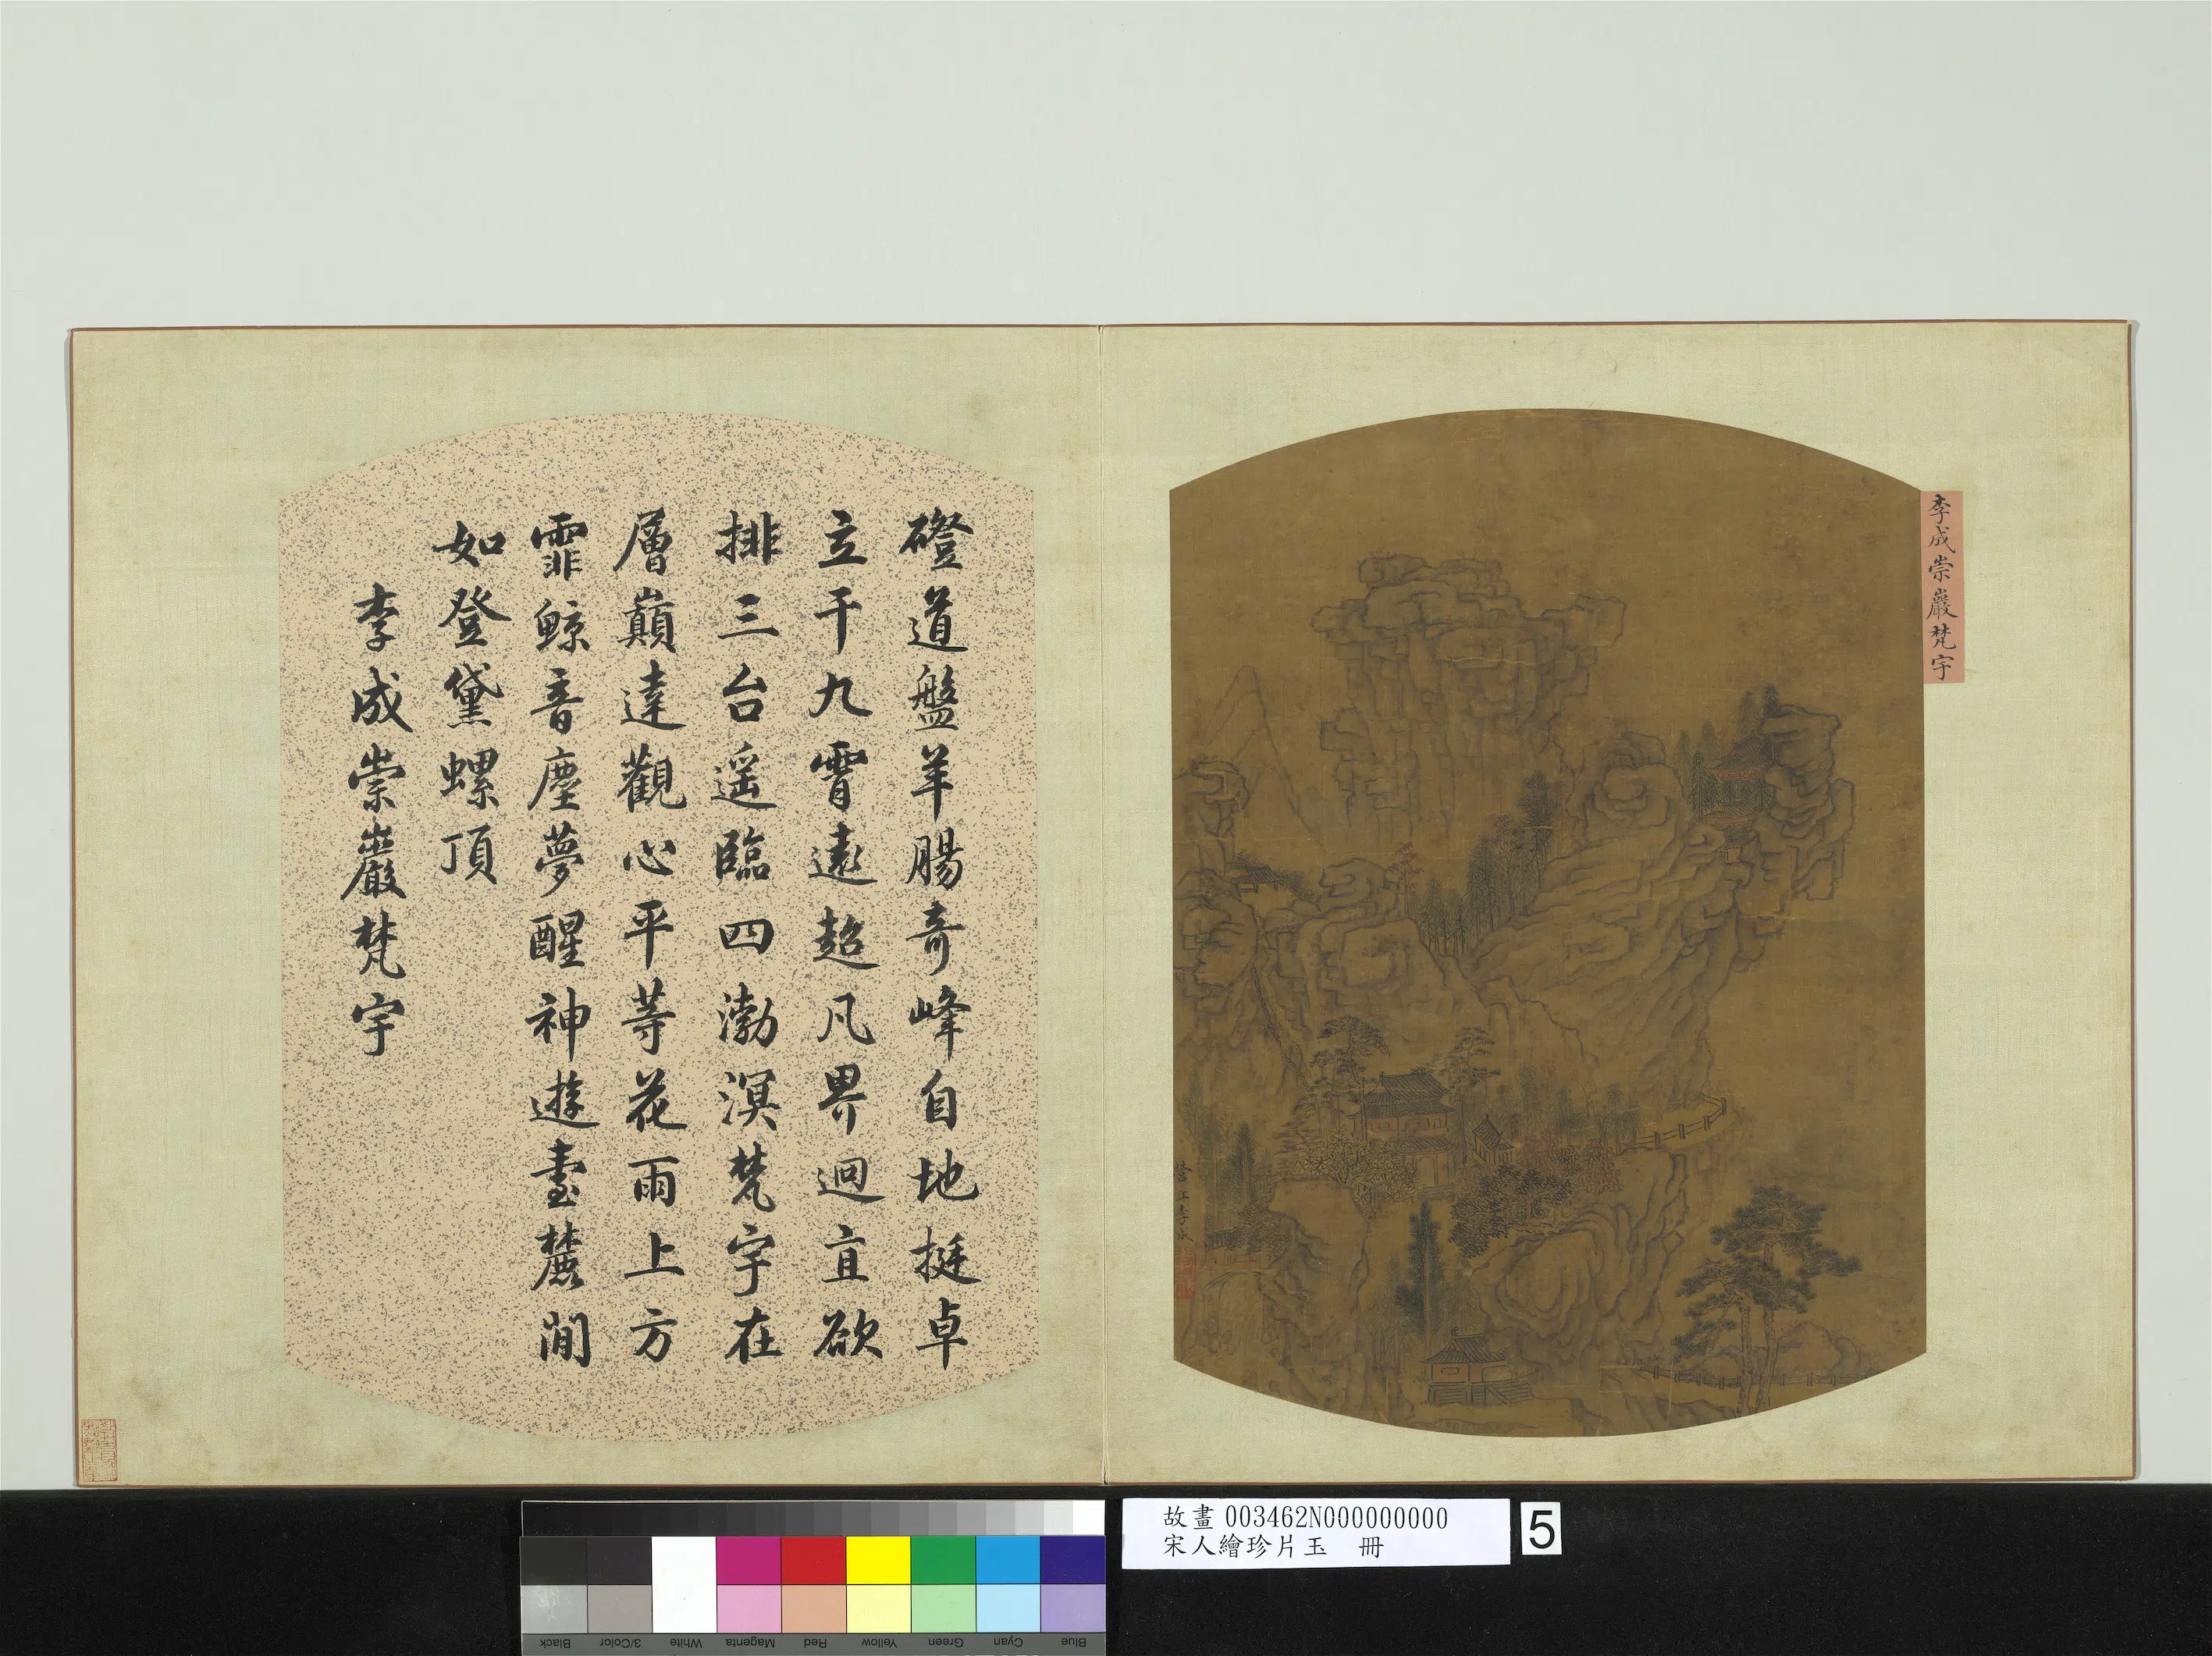 李成崇巖梵宇
磴道盤羊腸奇峰自地挺卓
立干九霄遠超凡界迥直欲
排三台遥臨四渤溟梵宇在
層巔達觀心平等花雨上方
霏鯨音塵夢醒神遊臺麓間
如登黛螺頂
李成崇巖梵宇
營丘李成
故畫 003462N000000000
宋人繪珍片玉 冊
5
Black
3/Color
White
Magenta
Red
Yellow
Green
Cyan
Blue